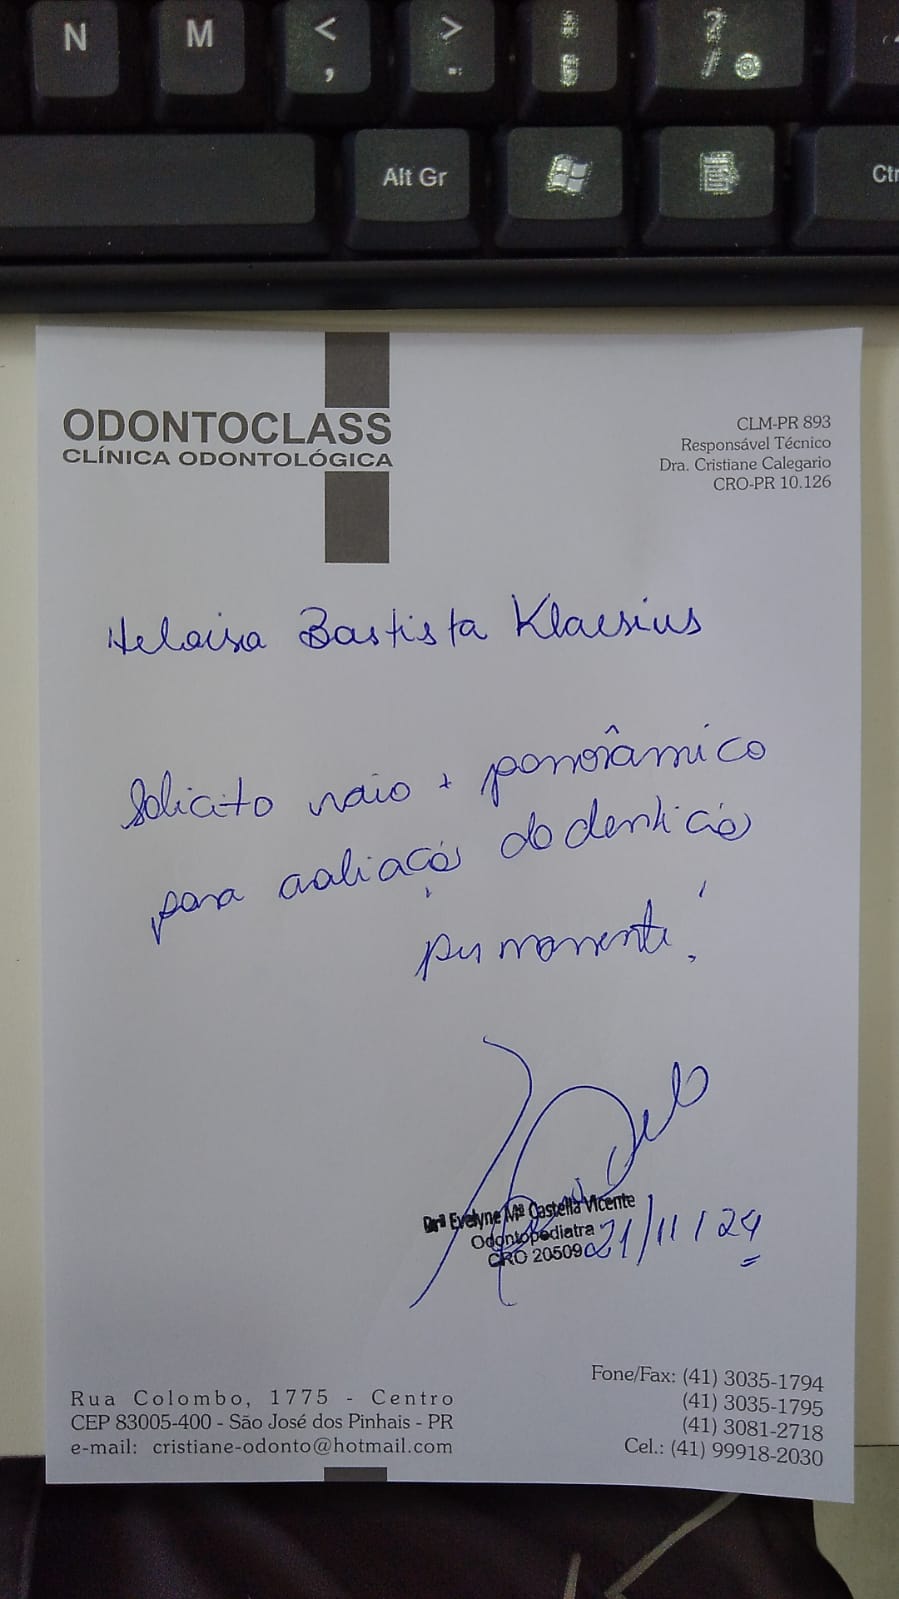 N M < , > . : ; ? / @
Alt Gr Ctr
ODONTOCLASS
CLÍNICA ODONTOLÓGICA
CLM-PR 893
Responsável Técnico
Dra. Cristiane Calegario
CRO-PR 10.126
Heloisa Bastista Klaesius
Solicito raio x panorâmico
para avaliação da dentição
permanente!
Drª Evelyne Mª Castella Vicente
Odontopediatra
CRO 20509 21/11/24
Rua Colombo, 1775 - Centro
CEP 83005-400 - São José dos Pinhais - PR
e-mail: cristiane-odonto@hotmail.com
Fone/Fax: (41) 3035-1794
(41) 3035-1795
(41) 3081-2718
Cel.: (41) 99918-2030